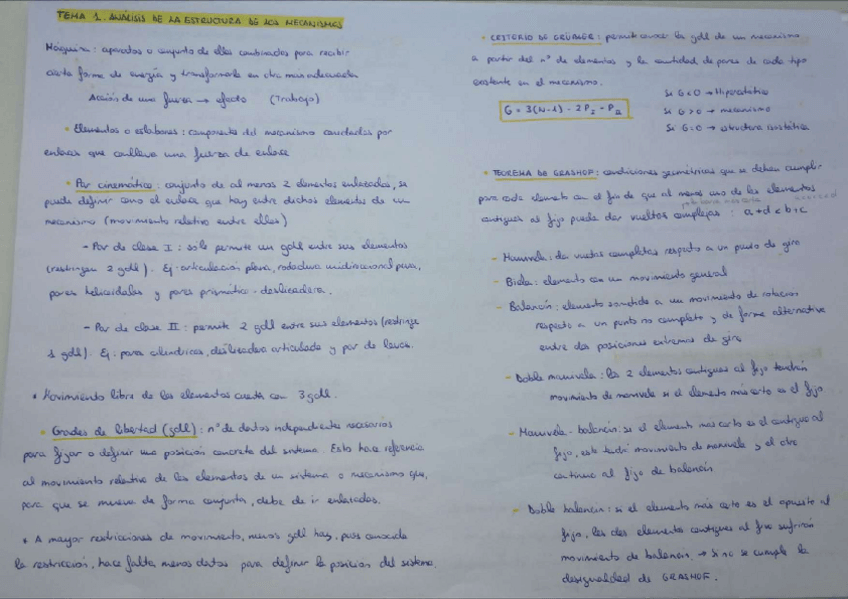 TEMA 1. ANÁLISIS DE LA ESTRUCTURA DE LOS MECANISMOS
Máquina: aparatos o conjunto de ellos combinados para recibir
cierta forma de energía y transformarla en otra más adecuada
Acción de una fuerza → efecto (Trabajo)
• Elementos o eslabones: componente del mecanismo conectados por
enlaces que conlleva una fuerza de enlace
• Par cinemático: conjunto de al menos 2 elementos enlazados, se
puede definir como el enlace que hay entre dichos elementos de un
mecanismo (movimiento relativo entre ellos)
- Par de clase I: solo permite un gdl entre sus elementos
(restringen 2 gdl). Ej. articulación plana, rodadura unidireccional pura,
pares helicoidales y pares prismático-deslizadera.
- Par de clase II: permite 2 gdl entre sus elementos (restringe
1 gdl). Ej: pares cilíndricos, deslizadera articulada y par de levas.
• Movimiento libre de los elementos cuenta con 3 gdl.
• Grados de libertad (gdl): nº de datos independientes necesarios
para fijar o definir una posición concreta del sistema. Esto hace referencia
al movimiento relativo de los elementos de un sistema o mecanismo que,
para que se mueva de forma conjunta, debe de ir enlazados.
• A mayor restricciones de movimiento, menos gdl hay, pues conocida
la restricción, hace falta menos datos para definir la posición del sistema.
• CRITERIO DE GRÜBLER: permite conocer los gdl de un mecanismo
a partir del nº de elementos y la cantidad de pares de cada tipo
existente en el mecanismo.
G = 3(N-1) - 2P_I - P_II
Si G<0 → Hiperestático
Si G>0 → mecanismo
Si G=0 → estructura isostática
• TEOREMA DE GRASHOF: condiciones geométricas que se deben cumplir
para cada elemento con el fin de que al menos uno de los elementos
contiguos al fijo pueda dar vueltas completas: a+d<b+c
- Manivela: da vueltas completas respecto a un punto de giro
- Biela: elemento con un movimiento general
- Balancín: elemento sometido a un movimiento de rotación
respecto a un punto no completo y de forma alternativa
entre dos posiciones extremas de giro
- Doble manivela: los 2 elementos contiguos al fijo tendrán
movimiento de manivela si el elemento más corto es el fijo
- Manivela-balancín: si el elemento más corto es el contiguo al
fijo, este tendrá movimiento de manivela y el otro
contiguo al fijo de balancín
- Doble balancín: si el elemento más corto es el opuesto al
fijo, los dos elementos contiguos al fijo sufrirán
movimiento de balancín, → Si no se cumple la
desigualdad de GRASHOF.